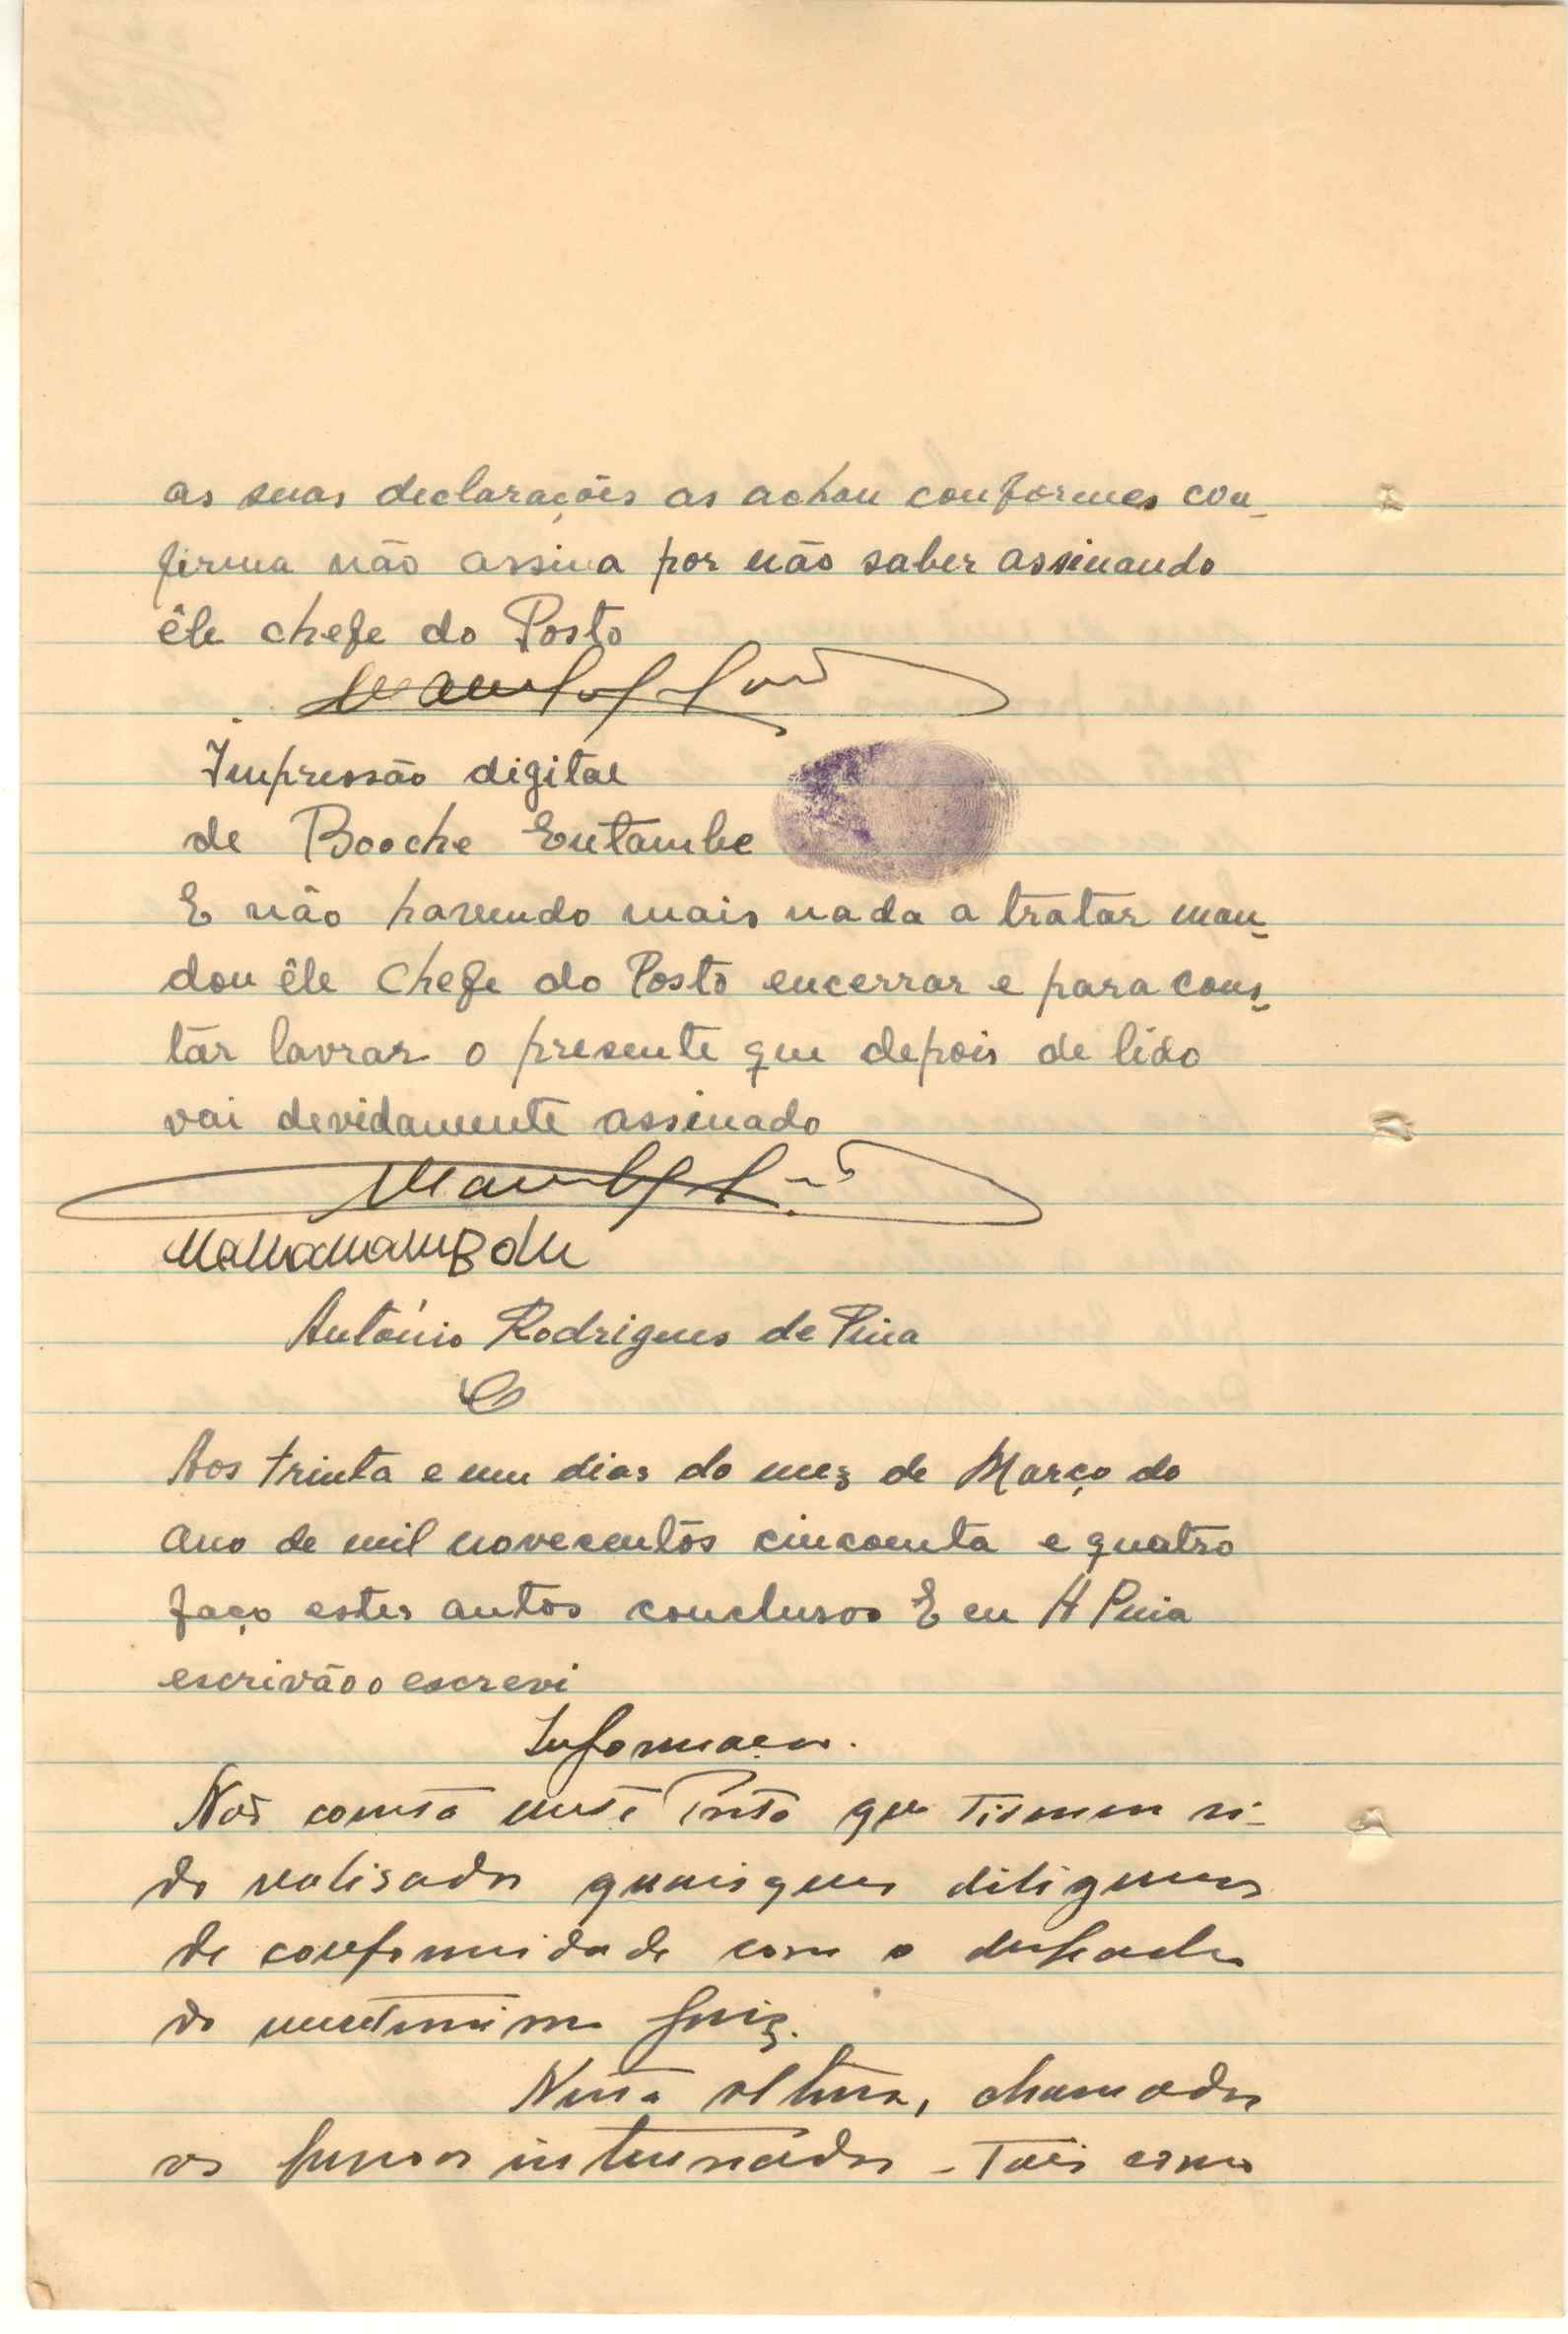 as suas declarações as achou conformes con-
firma não assina por não saber assinando
êle chefe do Posto
Impressão digital
de Booche Entambe
E não havendo mais nada a tratar man-
dou êle Chefe do Posto encerrar e para cons-
tar lavrar o presente que depois de lido
vai devidamente assinado
António Rodrigues de Pina
Aos trinta e um dias do mez de Março do
ano de mil novecentos cincoenta e quatro
faço estes autos conclusos E eu A Pina
escrivão o escrevi
Informação.
Não consta neste Posto que tivessem si-
do realisadas quaisquer diligencias
de conformidade com o despacho
do meretissimo Juiz.
Nesta altura, chamados
os interessados - Tais como